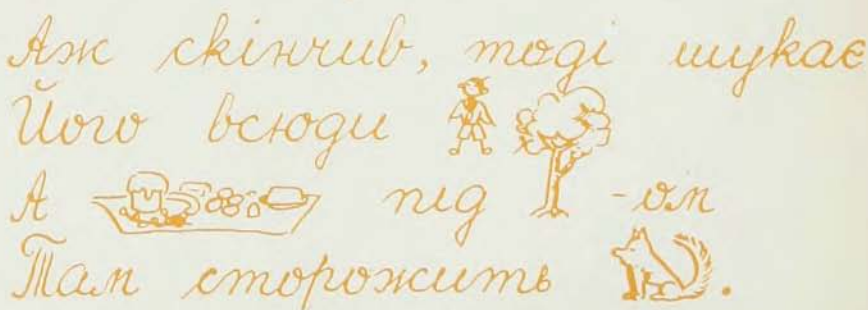 Аж скінчив, тоді шукає
Його всюди
А під -ом
Там сторожить .